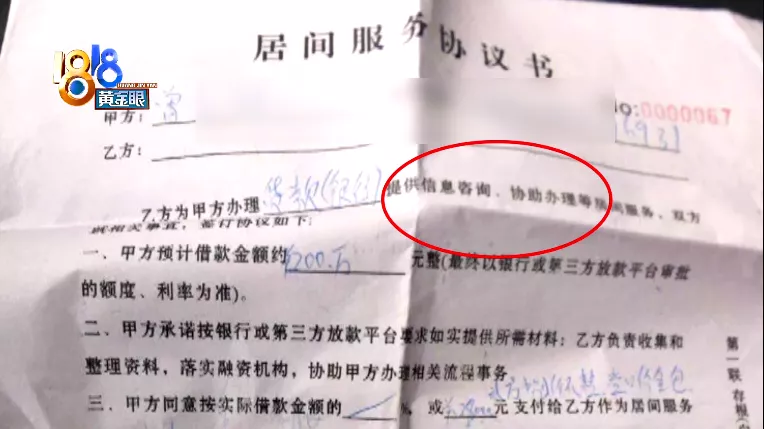 居间服务协议书
1818
黄金眼
甲方：曾
No:0000067
乙方：
乙方为甲方办理贷款(银行)提供信息咨询、协助办理等居间服务，双方
签订协议如下：
一、甲方预计借款金额约200万元整(最终以银行或第三方放款平台审批
的额度、利率为准)。
二、甲方承诺按银行或第三方放款平台要求如实提供所需材料；乙方负责收集和
整理资料，落实融资机构，协助甲方办理相关流程事务。
三、甲方同意按实际借款金额的%，或元支付给乙方作为居间服务
第一联 存根